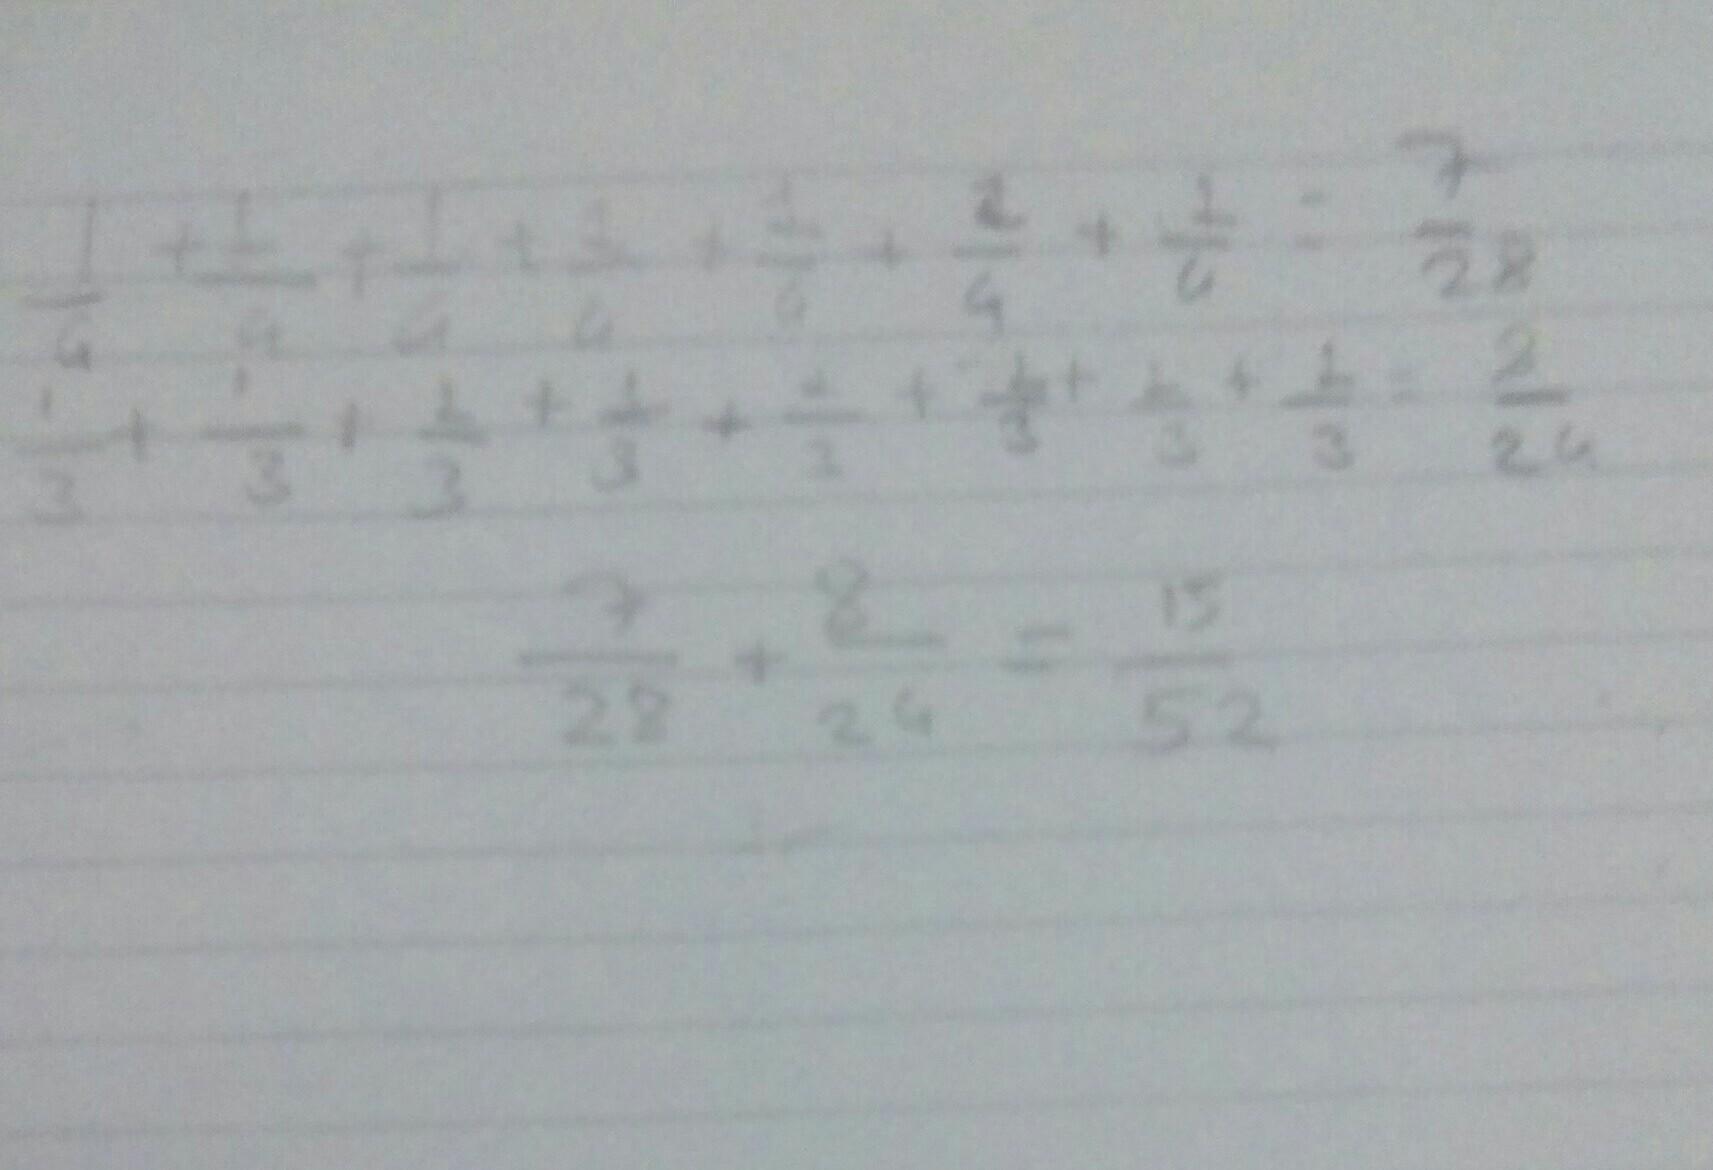 1/4 + 1/4 + 1/4 + 1/4 + 1/4 + 1/4 + 1/4 = 7/28
1/3 + 1/3 + 1/3 + 1/3 + 1/3 + 1/3 + 1/3 + 1/3 = 8/24
7/28 + 8/24 = 15/52